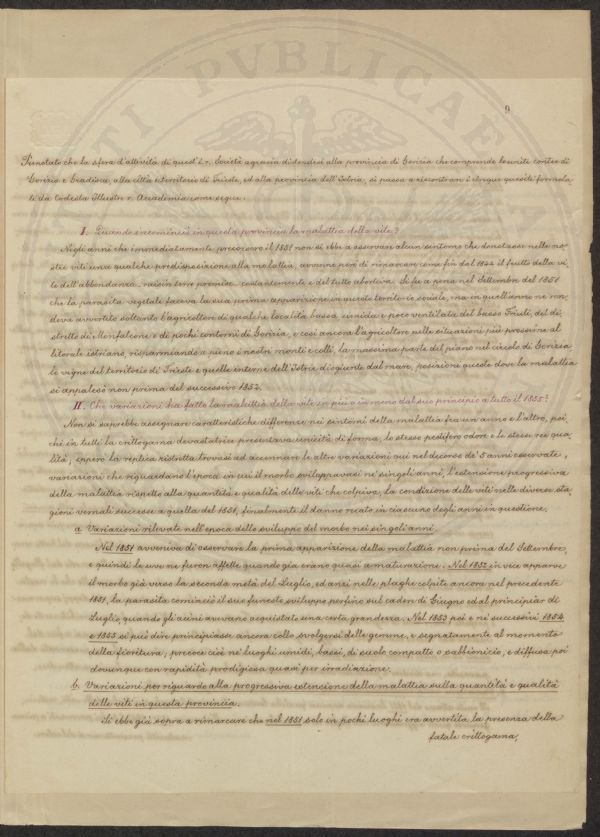 PVBLICAE
9
Premotato che la sfera d'attività di quest'I. r. Società agraria distendesi alla provincia di Gorizia che comprende le unite contee di
Gorizia e Gradisca, alla città e territorio di Trieste, ed alla provincia dell'Istria, si passa a riscontrare i cinque quesiti formola-
ti da codesta Illustre r. Accademia come segue:
I. Quando incominciò in questa provincia la malattia della vite?
Negli anni che immediatamente precorsero il 1851 non si ebbe a osservar alcun sintomo che denotasse nelle no-
stre viti una qualche predisposizione alla malattia, avvenne però di rimarcar come fin dal 1844 il frutto della vi-
te dell'abbondanza - raisin terre promise - costantemente e del tutto abortiva. Si fu a pena nel Settembre del 1851
che la parasita vegetale faceva la sua prima apparizione in questo territorio sociale, ma in quell'anno ne ren-
deva avvertito soltanto l'agricoltore di qualche località bassa, umida e poco ventilata del basso Friuli, del di-
stretto di Monfalcone e di pochi contorni di Gorizia, e così ancora l'agricoltore nelle situazioni più prossime al
litorale istriano, risparmiando a pieno i nostri monti e colli, la massima parte del piano nel circolo di Gorizia
le vigne del territorio di Trieste e quelle interne dell'Istria disgiunte dal mare, posizioni queste dove la malattia
si appalesò non prima del successivo 1852.
II. Che variazioni ha fatto la malattia della vite in più o in meno dal suo principio a tutto il 1855?
Non si saprebbe assegnare caratteristiche differenze nei sintomi della malattia fra un anno e l'altro, poi-
chè in tutti la crittogama devastatrice presentava unicità di forma, lo stesso pestifero odore e le stesse ree qua-
lità; epperò la replica ristretta trovasi ad accennare le altre variazioni qui nel decorso de' 5 anni osservate,
variazioni che riguardano l'epoca in cui il morbo sviluppavasi ne' singoli anni, l'estensione progressiva
della malattia rispetto alla quantità e qualità delle viti che colpiva, la condizione delle viti nelle diverse sta-
gioni vernali successe a quella del 1851, finalmente il danno recato in ciascuno degli anni in questione.
a. Variazioni rilevate nell'epoca dello sviluppo del morbo nei singoli anni.
Nel 1851 avveniva di osservare la prima apparizione della malattia non prima del Settembre,
e quindi le uve ne furon affette quando già erano quasi a maturazione. Nel 1852 in vice apparve
il morbo già verso la seconda metà del Luglio, ed anzi nelle plaghe colpite ancora nel precedente
1851, la parasita cominciò il suo funesto sviluppo perfino sul caden di Giugno ed al principiar di
Luglio, quando gli acini avevano acquistato una certa grandezza. Nel 1853 poi e ne' successivi 1854
e 1855 si può dire principiasse ancora collo svolgersi delle gemme, e segnatamente al momento
della fioritura; precoce cioè ne' luoghi umidi, bassi, di suolo compatto o sabbionicio, e diffusa poi
dovunque con rapidità prodigiosa quasi per irradiazione.
b. Variazioni per riguardo alla progressiva estencione della malattia sulla quantità e qualità
delle viti in questa provincia.
Si ebbe già sopra a rimarcare che nel 1851 solo in pochi luoghi era avvertita la presenza della
fatale crittogama,